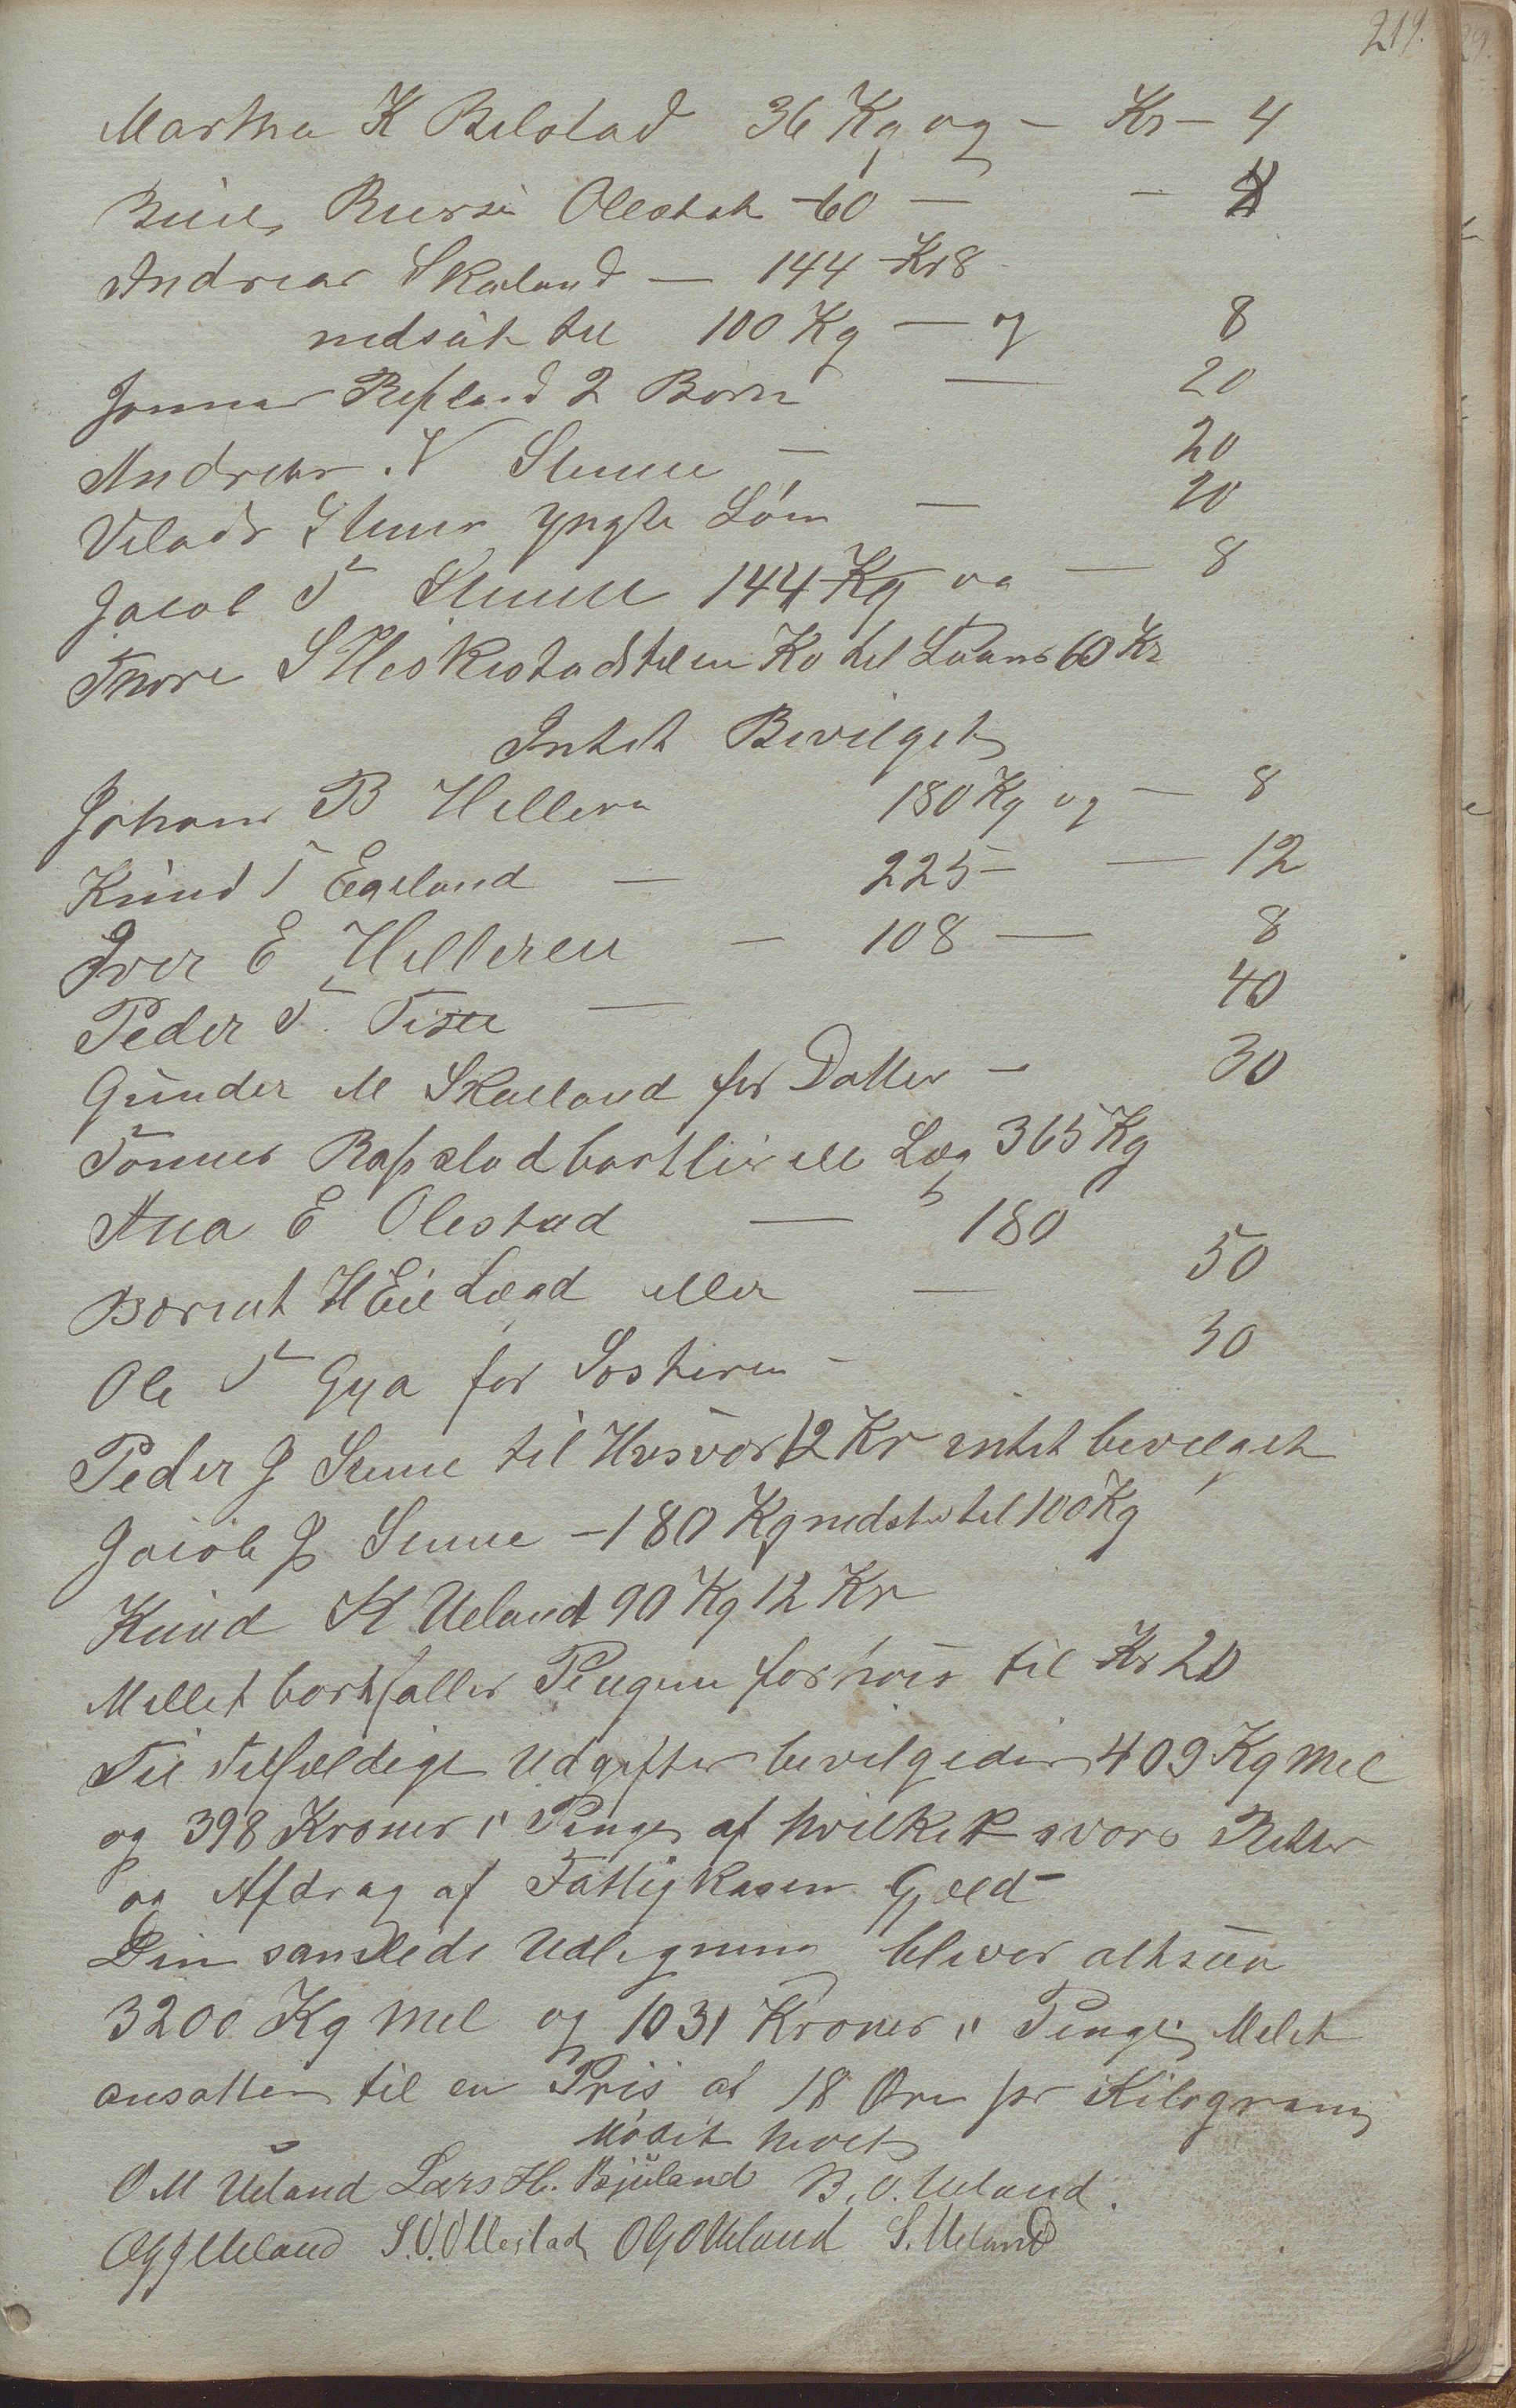 219.
Martha K Bilstad 36 Kg og – Kr – 4
Olestad – 60 – – 4
Andreas Skarland — 144 – Kr 8
nedsat til 100 Kg — og 8
Refsland 2 Børn — 20
Andreas N Stune — 20
Stune yngste Søn — 20
Jacob T Stune 144 Kg og — 8
Thore S Heskestad til en Ko til Laans 60 Kr
Intet Bevilget
Johans B Helleren 180 Kg og — 8
Knud T Egeland — 225 – — 12
Iver E Helleren — 108 — 8
Peder T. — 40
Gunder M Skarland for Datter – 30
Tønnes Rapstad Læg 365 Kg
Ana E Olestad — 180
Berent H Eie Lægd eller — 50
Ole T Gya for Søsteren – 50
Peder J Stune til Husvær 12 Kr intet bevilget
Jacob J Stune – 180 Kg nedsat til 100 Kg
Knud K Ueland 90 Kg 12 Kr
Mellet bortfaller Pengene forhøies til Kr 20
Til Tilfældige Udgifter bevilgedes 409 Kg Mel
og 398 Kroner i Penge af hvilket svares Renter
og Afdrag af Fattigkasen Gjæld
Den samlede Udligning bliver altsaa
3200 Kg Mel og 1031 Kroner i Penge, Melet
ansatte til en Pris af 18 Øre pr Kilogram
Mødet hævet
O M Ueland Lars H. Bjuland B. O. Ueland.
Ueland S. O. Ollestad O G O Ueland S. Ueland